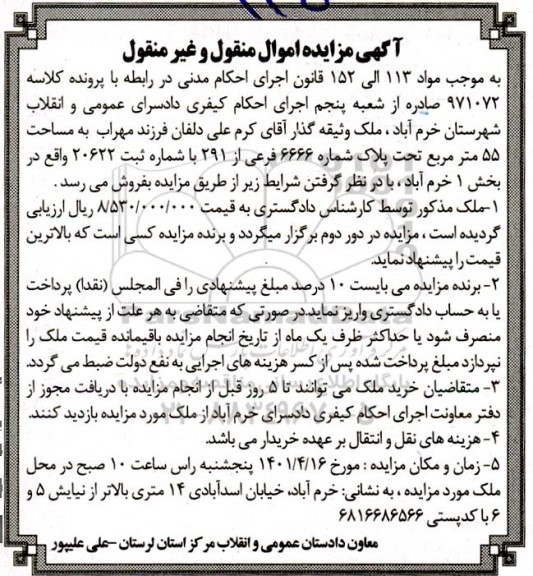 آگهی مزایده اموال منقول و غیر منقول
به موجب مواد ۱۱۳ الی ۱۵۲ قانون اجرای احکام مدنی در رابطه با پرونده کلاسه
۹۷۱۰۷۲ صادره از شعبه پنجم اجرای احکام کیفری دادسرای عمومی و انقلاب
شهرستان خرم آباد ، ملک وثیقه گذار آقای کرم علی دلفان فرزند مهراب به مساحت
۵۵ متر مربع تحت پلاک شماره ۶۶۶۶ فرعی از ۲۹۱ با شماره ثبت ۲۰۶۲۲ واقع در
بخش ۱ خرم آباد ، با در نظر گرفتن شرایط زیر از طریق مزایده بفروش می رسد .
۱-ملک مذکور توسط کارشناس دادگستری به قیمت ۸/۵۳۰/۰۰۰/۰۰۰ ریال ارزیابی
گردیده است ، مزایده در دور دوم برگزار میگردد و برنده مزایده کسی است که بالاترین
قیمت را پیشنهاد نماید.
۲- برنده مزایده می بایست ۱۰ درصد مبلغ پیشنهادی را فی المجلس (نقدا) پرداخت
یا به حساب دادگستری واریز نماید در صورتی که متقاضی به هر علت از پیشنهاد خود
منصرف شود یا حداکثر ظرف یک ماه از تاریخ انجام مزایده باقیمانده قیمت ملک را
نپردازد مبلغ پرداخت شده پس از کسر هزینه های اجرایی به نفع دولت ضبط می گردد.
۳- متقاضیان خرید ملک می توانند تا ۵ روز قبل از انجام مزایده با دریافت مجوز از
دفتر معاونت اجرای احکام کیفری دادسرای خرم آباد از ملک مورد مزایده بازدید کنند.
۴- هزینه های نقل و انتقال بر عهده خریدار می باشد.
۵- زمان و مکان مزایده : مورخ ۱۴۰۱/۴/۱۶ پنجشنبه راس ساعت ۱۰ صبح در محل
ملک مورد مزایده ، به نشانی: خرم آباد، خیابان اسدآبادی ۱۴ متری بالاتر از نیایش ۵ و
۶ با کدپستی ۶۸۱۶۶۸۶۵۶۶
معاون دادستان عمومی و انقلاب مرکز استان لرستان -علی علیپور